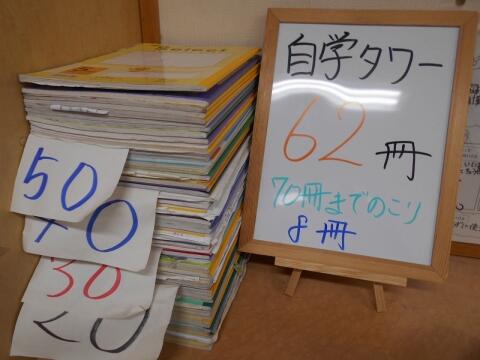 自学タワー
62冊
70冊までのこり
8冊
50
40
30
20